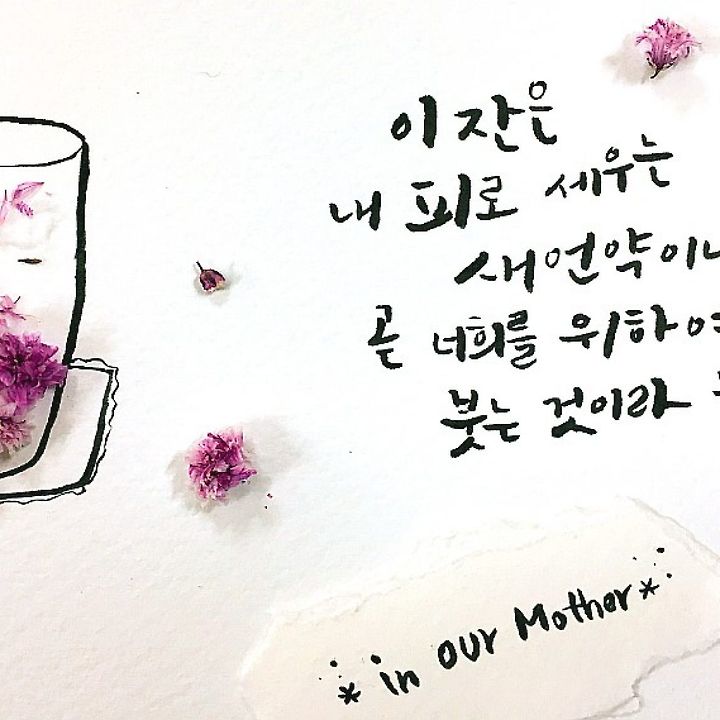 이 잔은
내 피로 세우는
새 언약이
곧 너희를 위하여
붓는 것이라
* in our Mother *